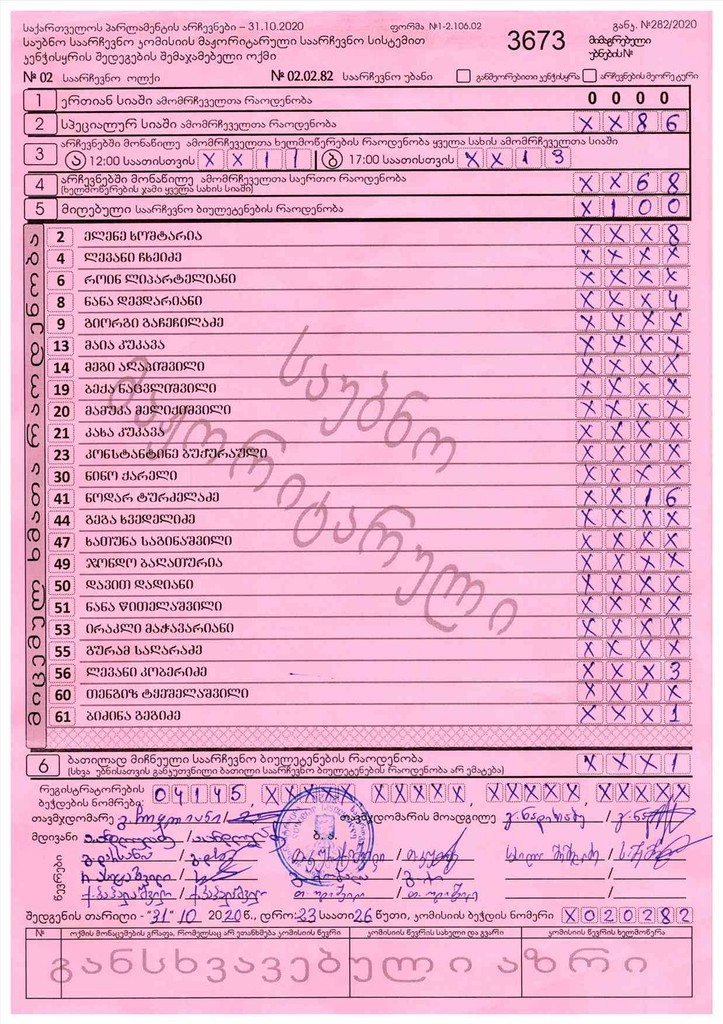 საქართველოს პარლამენტის არჩევნები – 31.10.2020 ფორმა №1-2.106.02 განკ. №282/2020
საუბნო საარჩევნო კომისიის მაჟორიტარული საარჩევნო სისტემით 3673 მიმაგრებული
კენჭისყრის შედეგების შემაჯამებელი ოქმი უბნების№
№ 02 საარჩევნო ოლქი № 02.02.82 საარჩევნო უბანი განმეორებითი კენჭისყრა არჩევნების მეორე ტური
1 ერთიან სიაში ამომრჩეველთა რაოდენობა 0 0 0 0
2 სპეციალურ სიაში ამომრჩეველთა რაოდენობა X X 8 6
3 არჩევნებში მონაწილე ამომრჩეველთა ხელმოწერების რაოდენობა ყველა სახის ამომრჩეველთა სიაში
ა 12:00 საათისთვის X X 1 1 ბ 17:00 საათისთვის X X 1 3
4 არჩევნებში მონაწილე ამომრჩეველთა საერთო რაოდენობა X X 6 8
(ხელმოწერების ჯამი ყველა სახის სიაში)
5 მიღებული საარჩევნო ბიულეტენების რაოდენობა X 1 0 0
მიცემულ ხმათა რაოდენობა
2 ელენე ხოშტარია X X X 8
4 ლევანი ჩხეიძე X X X X
6 როინ ლიპარტელიანი X X X X
8 ნანა დევდარიანი X X X 4
9 გიორგი გაჩეჩილაძე X X X X
13 მაია კუკავა X X X X
14 მეგი ალაპიშვილი X X X X
19 ბექა ნაცვლიშვილი X X X X
20 მამუკა მელიქიშვილი X X X X
21 კახა კუკავა X X X X
23 კონსტანტინე ბუქურაული X X X X
30 ნინო ქარელი X X X X
41 ნოდარ ტურძელაძე X X 1 6
44 გეგა ხვედელიძე X X X X
47 ხათუნა საგინაშვილი X X X X
49 ჯონდო ბაღათურია X X X X
50 დავით დადიანი X X X X
51 ნანა წითელაშვილი X X X X
53 ირაკლი მაჭავარიანი X X X X
55 გურამ საღარაძე X X X X
56 ლევანი კობერიძე X X X 3
60 თენგიზ ტყეშელაშვილი X X X X
61 ბიძინა გეგიძე X X X 1
საუბნო
მაჟორიტარული
6 ბათილად მიჩნეული საარჩევნო ბიულეტენების რაოდენობა X X X 1
(სხვა უბნისათვის განკუთვნილი ბათილი საარჩევნო ბიულეტენების რაოდენობა არ ემატება)
რეგისტრატორების
ბეჭდების ნომრები: 0 4 1 4 5, X X X X X, X X X X X, X X X X X, X X X X X
თავმჯდომარე / თავმჯდომარის მოადგილე /
მდივანი / ბ.ა.
წევრები
შედგენის თარიღი - "31" 10 2020 წ., დრო: 23 საათი 26 წუთი, კომისიის ბეჭდის ნომერი X 0 2 0 2 8 2
№ ოქმის მონაცემების გრაფა, რომელსაც არ ეთანხმება კომისიის წევრი კომისიის წევრის სახელი და გვარი კომისიის წევრის ხელმოწერა
განსხვავებული აზრი